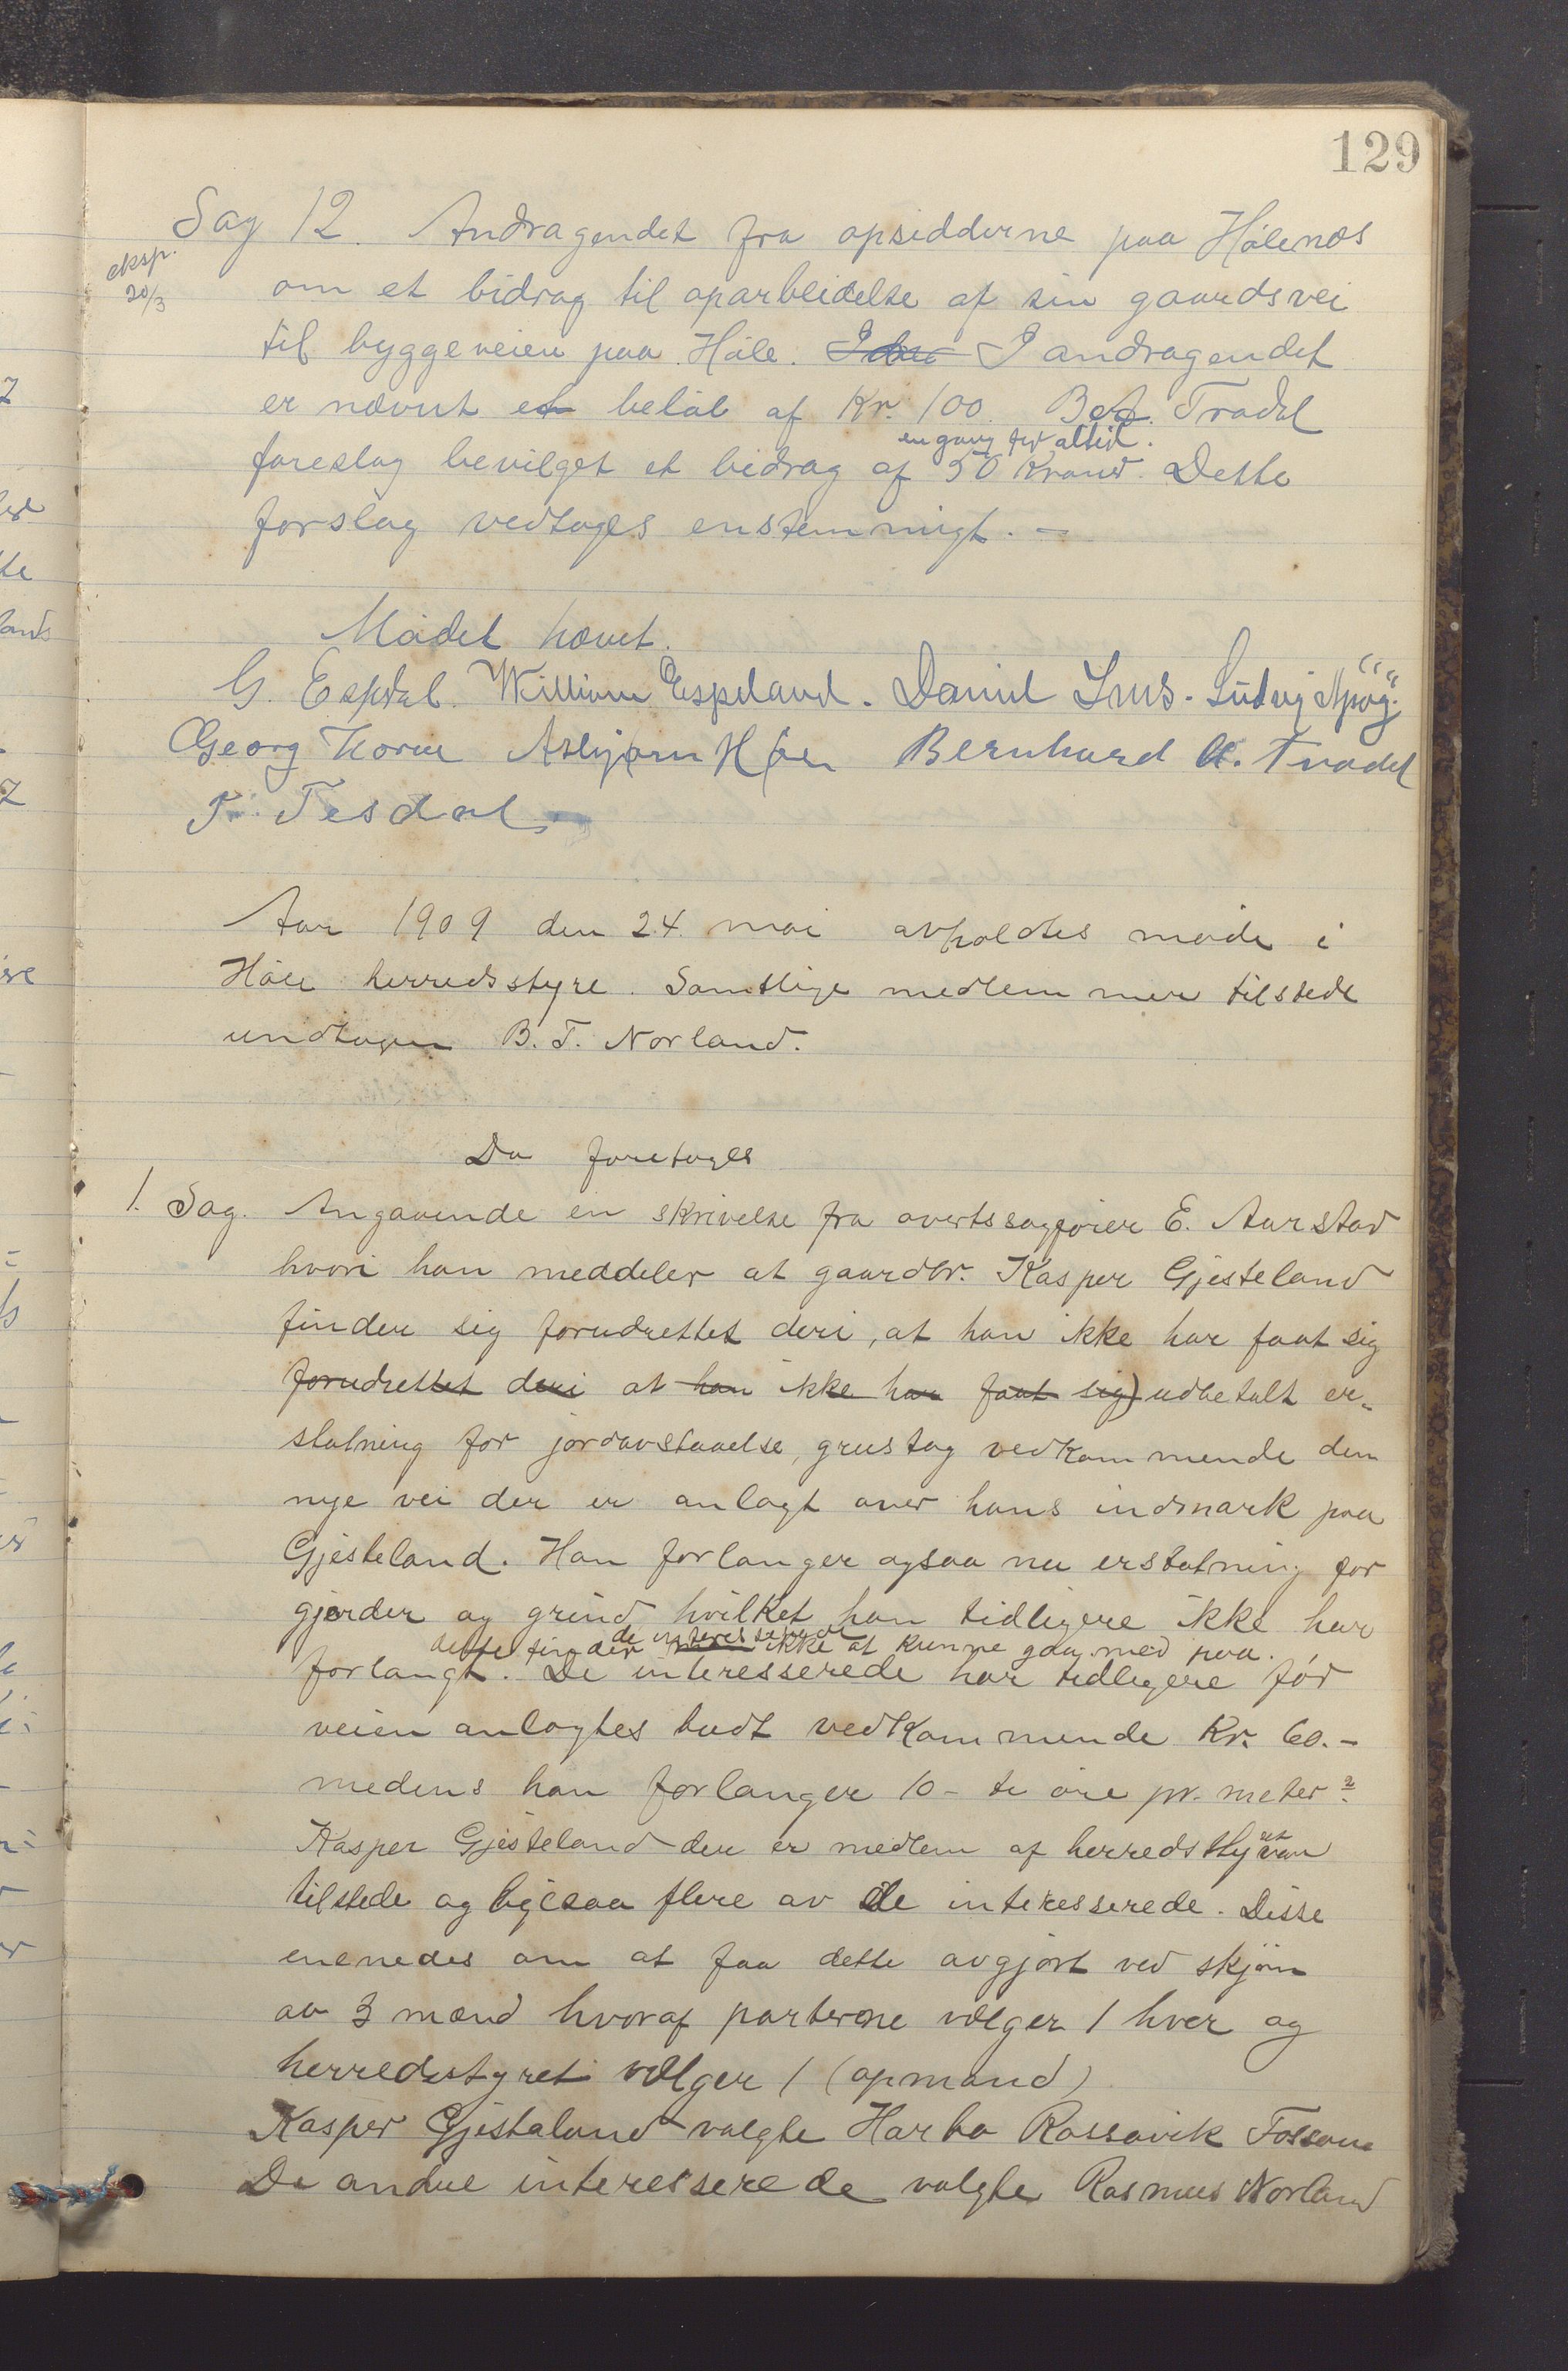 129
Sag 12. Andragendet fra opsidderne paa Hølenæs
eksp.
20/3
om et bidrag til oparbeidelse af sin gaardsvei
til byggeveien paa Høle. I andragendet
er nævnt et beløb af Kr. 100. Tradal
en gang for altid.
foreslog bevilget et bidrag af 50 Kroner. Dette
forslag vedtoges enstemmigt. -
Mødet hævet.
G. Espdal. William Espeland. Daniel Ims. Ludvig
Georg Horve Asbjørn Høle Bernhard A. Tradal
T. Tesdal
Aar 1909 den 24. mai avholdtes møde i
Høle herredsstyre. Samtlige medlemmer tilstede
undtagen B. T. Norland.
Da foretoges
1. Sag. Angaaende en skrivelse fra overtssagfører E. Aarstad
hvori han meddeler at gaardbr. Kasper Gjesteland
finder sig forudrettet deri, at han ikke har faat sig
forudrettet deri at han ikke har faat sig) udbetalt er-
statning for jordavstaaelse, grustag vedkommende den
nye vei der er anlagt over hans indmark paa
Gjesteland. Han forlanger ogsaa nu erstatning for
gjerder og grind hvilket han tidligere ikke har
dette finder de interesserede ikke at kunne gaa med paa.
forlangt. De interesserede har tidligere før
veien anlagtes budt vedkommende Kr. 60.-
medens han forlanger 10- te øre pr. meter 2.
Kasper Gjesteland der er medlem af herredstyret var
tilstede og ligesaa flere av de interesserede. Disse
enenedes om at faa dette avgjort ved skjøn
av 3 mænd hvoraf parterne vælger 1 hver og
herredsstyret vælger 1 (opmand)
Kasper Gjestaland valgte Harbo Rossavik Fossan
De andre interesserede valgte Rasmus Norland